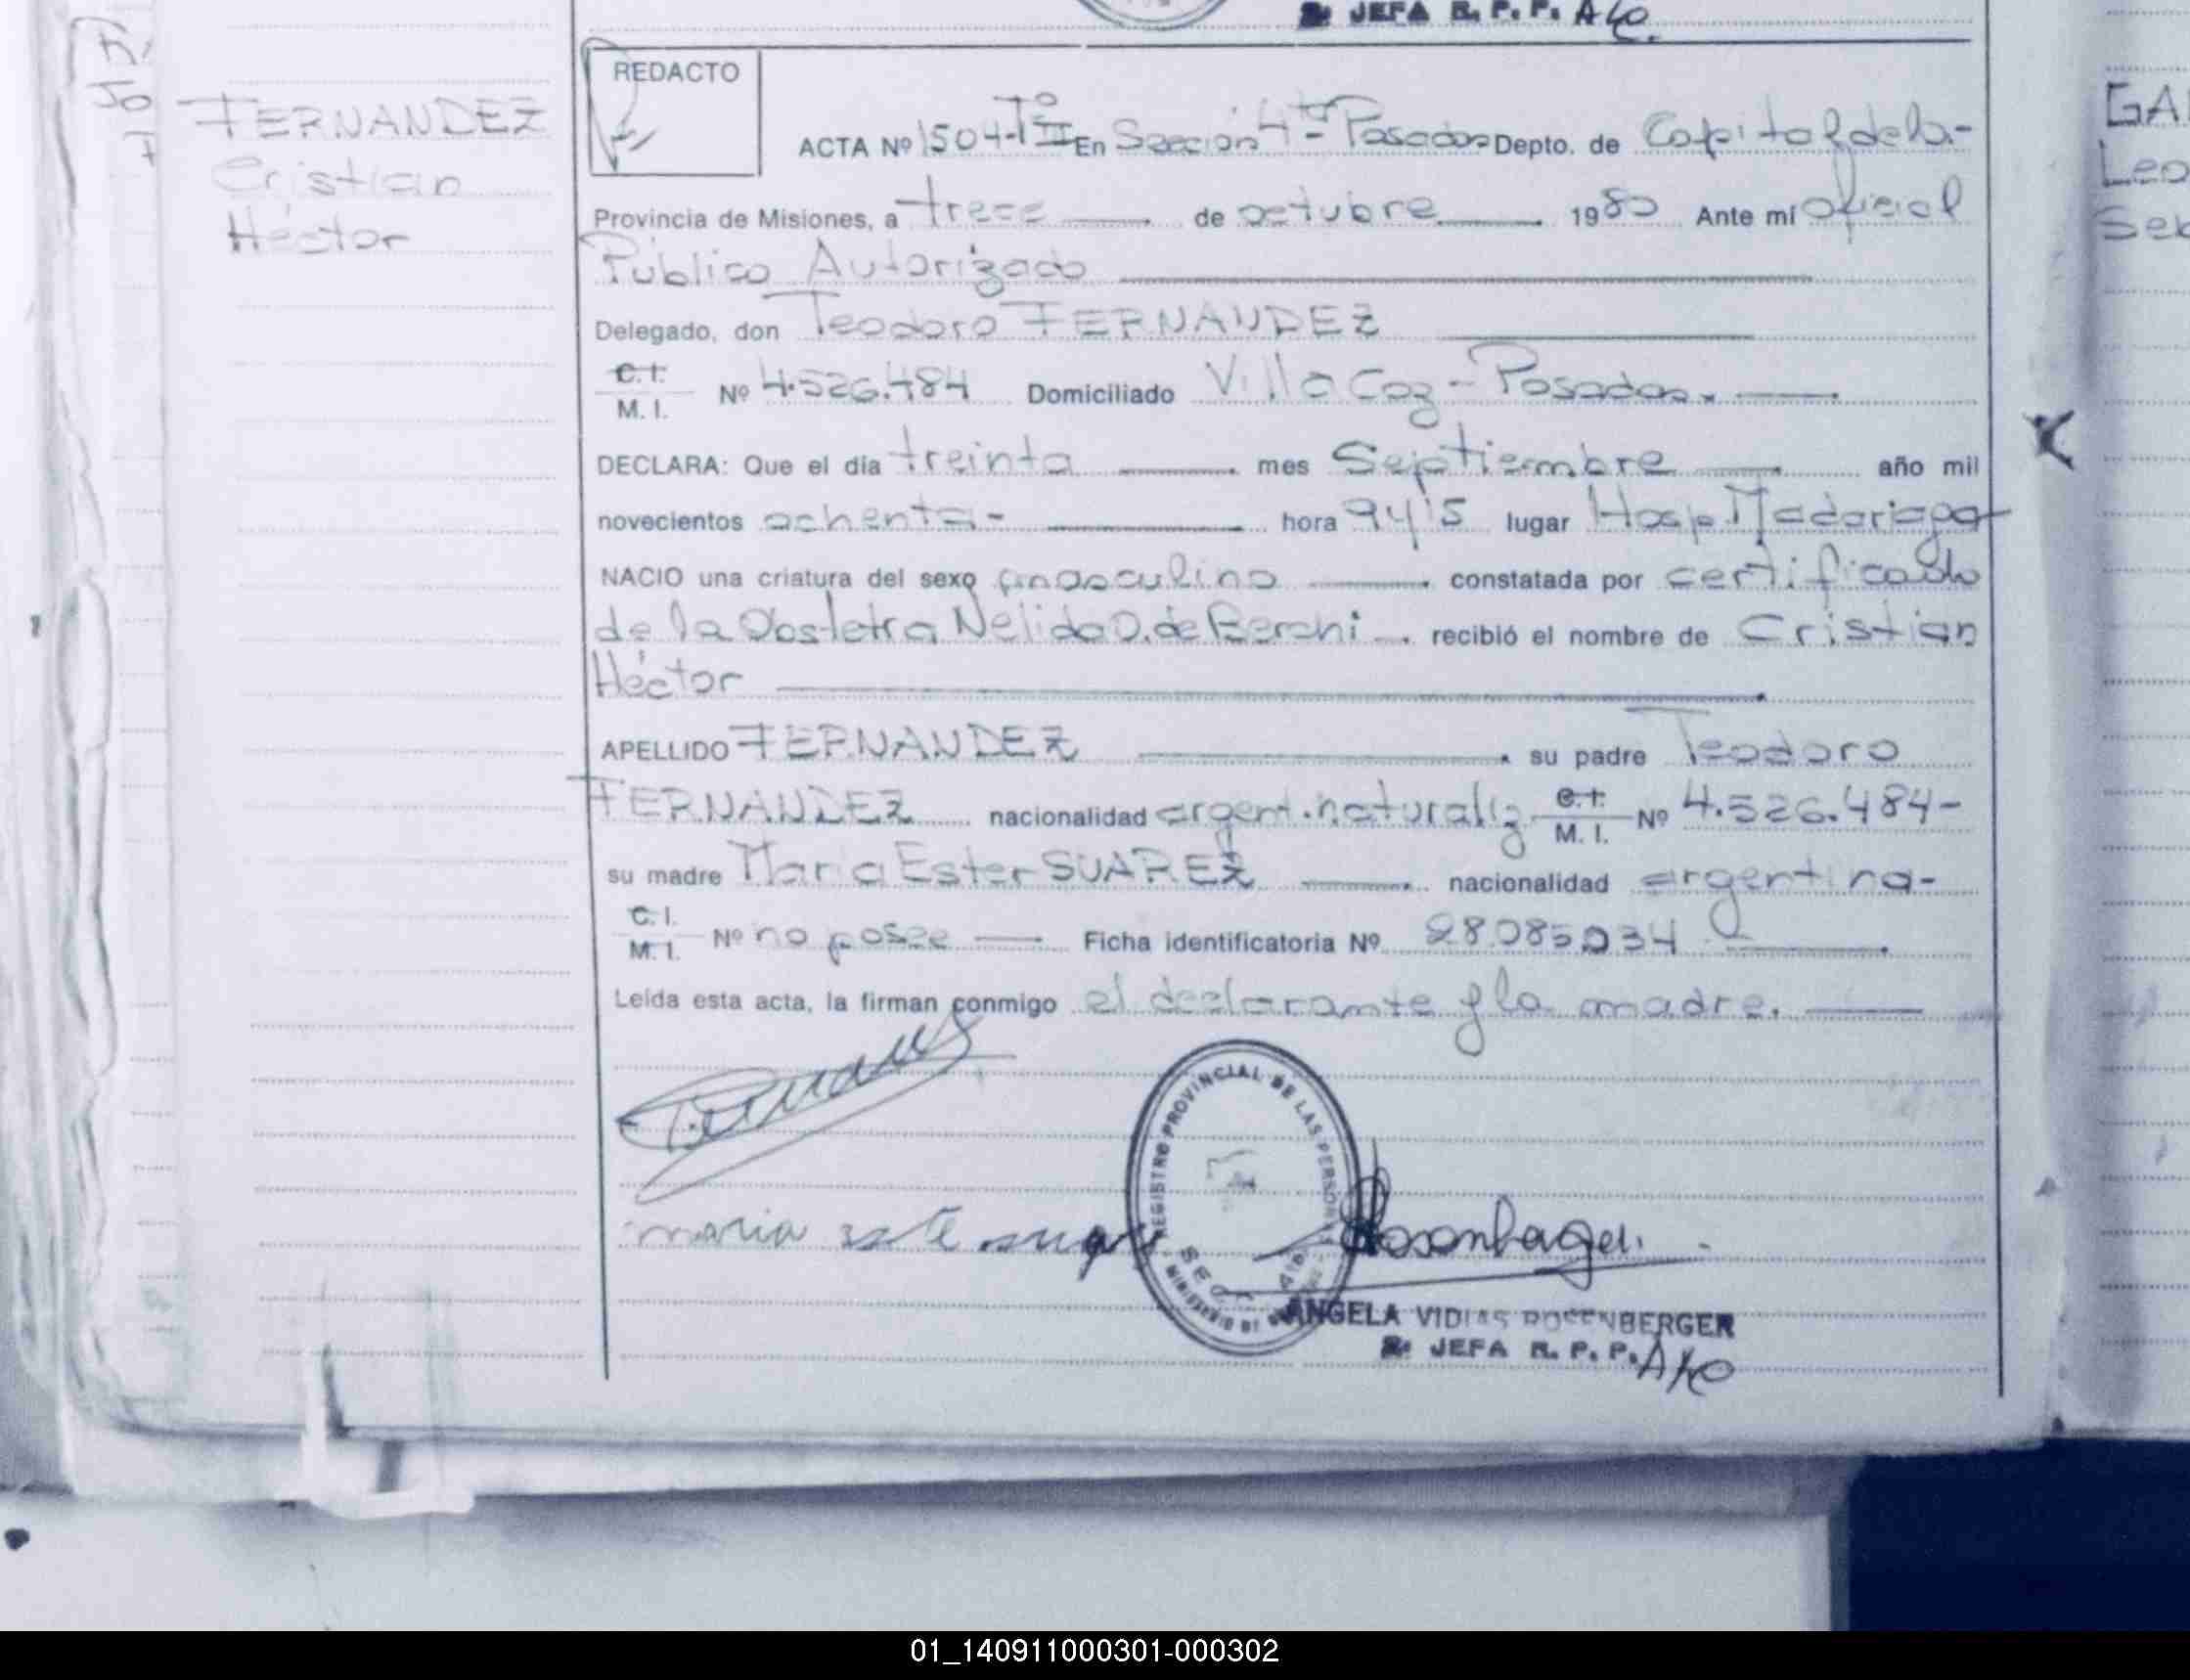 JEFA R. P. P. A/c.
REDACTO
FERNANDEZ
Cristian
Héctor
ACTA Nº 1504-Tº II En Sección 4ta- Posadas Depto. de Capital de la-
Provincia de Misiones, a trece de octubre 1980 Ante mí Oficial
Público Autorizado
Delegado, don Teodoro FERNANDEZ
C. I.
M. I. Nº 4.526.484 Domiciliado Villa Coz - Posadas.
DECLARA: Que el día treinta mes Septiembre año mil
novecientos ochenta- hora 9y15 lugar Hosp. Madariaga
NACIO una criatura del sexo masculino constatada por certificado
de la Obstetra Nelida D. de Berchi recibió el nombre de Cristian
Héctor
APELLIDO FERNANDEZ su padre Teodoro
FERNANDEZ nacionalidad argent. naturaliz C. I.
M. I. Nº 4.526.484-
su madre Maria Ester SUAREZ nacionalidad argentina-
C. I.
M. I. Nº no posee Ficha identificatoria Nº 28.085.034
Leída esta acta, la firman conmigo el declarante y la madre.
maria este
REGISTRO PROVINCIAL DE LAS PERSONAS
SECC. 4ta
MINISTERIO DE
ANGELA VIDIAS ROSENBERGER
JEFA R. P. P. A/c
GA
Leo
Seb
01_140911000301-000302